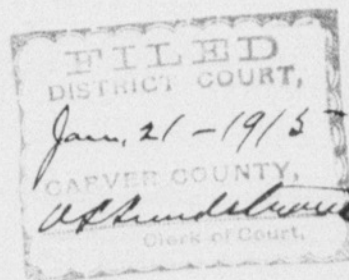 FILED
DISTRICT COURT,
Jan, 21 - 1915
CARVER COUNTY,
Clerk of Court.